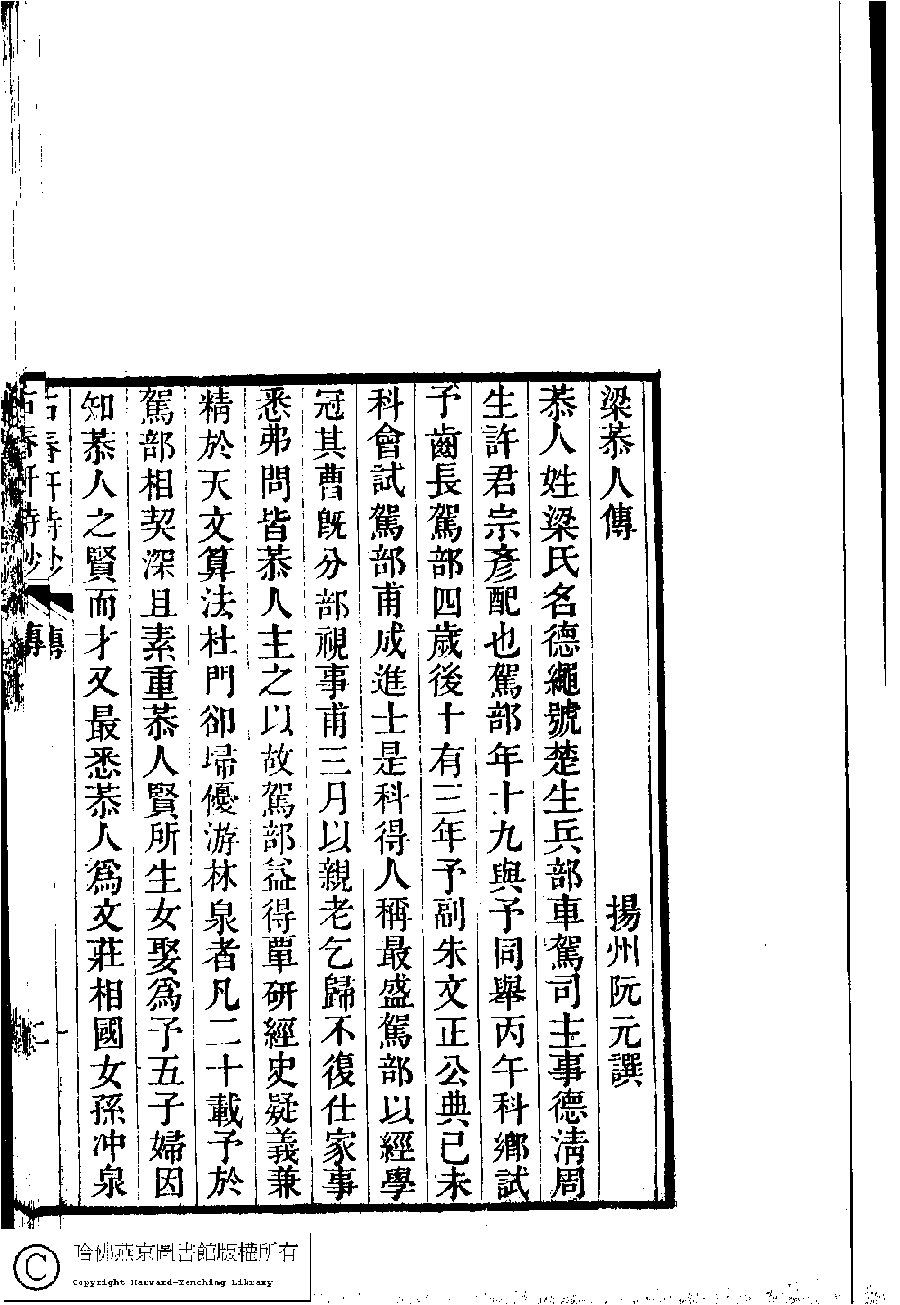 梁恭人傳 揚州阮元譔
恭人姓梁氏名德繩號楚生兵部車駕司主事德淸周
生許君宗彥配也駕部年十九與予同舉丙午科鄉試
予齒長駕部四歲後十有三年予副朱文正公典已未
科會試駕部甫成進士是科得人稱最盛駕部以經學
冠其曹旣分部視事甫三月以親老乞歸不復仕家事
悉弗問皆恭人主之以故駕部益得覃研經史疑義兼
精於天文算法杜門卻埽優游林泉者凡二十載予於
駕部相契深且素重恭人賢所生女娶爲予五子婦因
知恭人之賢而才又最悉恭人爲文莊相國女孫冲泉
古春軒詩鈔 傳
哈佛燕京圖書館版權所有
Copyright Harvard-Yenching Library